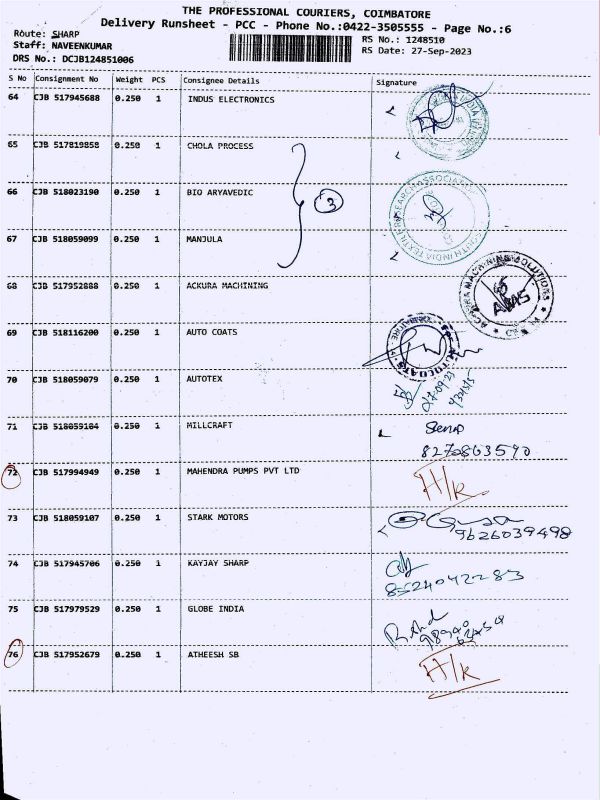 THE PROFESSIONAL COURIERS, COIMBATORE
Delivery Runsheet - PCC - Phone No.:0422-3505555 - Page No.:6
Route: SHARP
Staff: NAVEENKUMAR
DRS No.: DCJB124851006
RS No.: 1248510
RS Date: 27-Sep-2023
S No Consignment No Weight PCS Consignee Details Signature
64 CJB 517945688 0.250 1 INDUS ELECTRONICS
65 CJB 517819858 0.250 1 CHOLA PROCESS
66 CJB 518023190 0.250 1 BIO ARYAVEDIC
3
67 CJB 518059099 0.250 1 MANJULA
68 CJB 517952888 0.250 1 ACKURA MACHINING
ACKURA MACHINING SOLUTIONS
AMS
69 CJB 518116200 0.250 1 AUTO COATS
AUTOCOATS
70 CJB 518059079 0.250 1 AUTOTEX
27-09-23
71 CJB 518059104 0.250 1 MILLCRAFT
8270863590
72 CJB 517994949 0.250 1 MAHENDRA PUMPS PVT LTD
H/k
73 CJB 518059107 0.250 1 STARK MOTORS
9626039498
74 CJB 517945706 0.250 1 KAYJAY SHARP
8524042283
75 CJB 517979529 0.250 1 GLOBE INDIA
76 CJB 517952679 0.250 1 ATHEESH SB
H/k